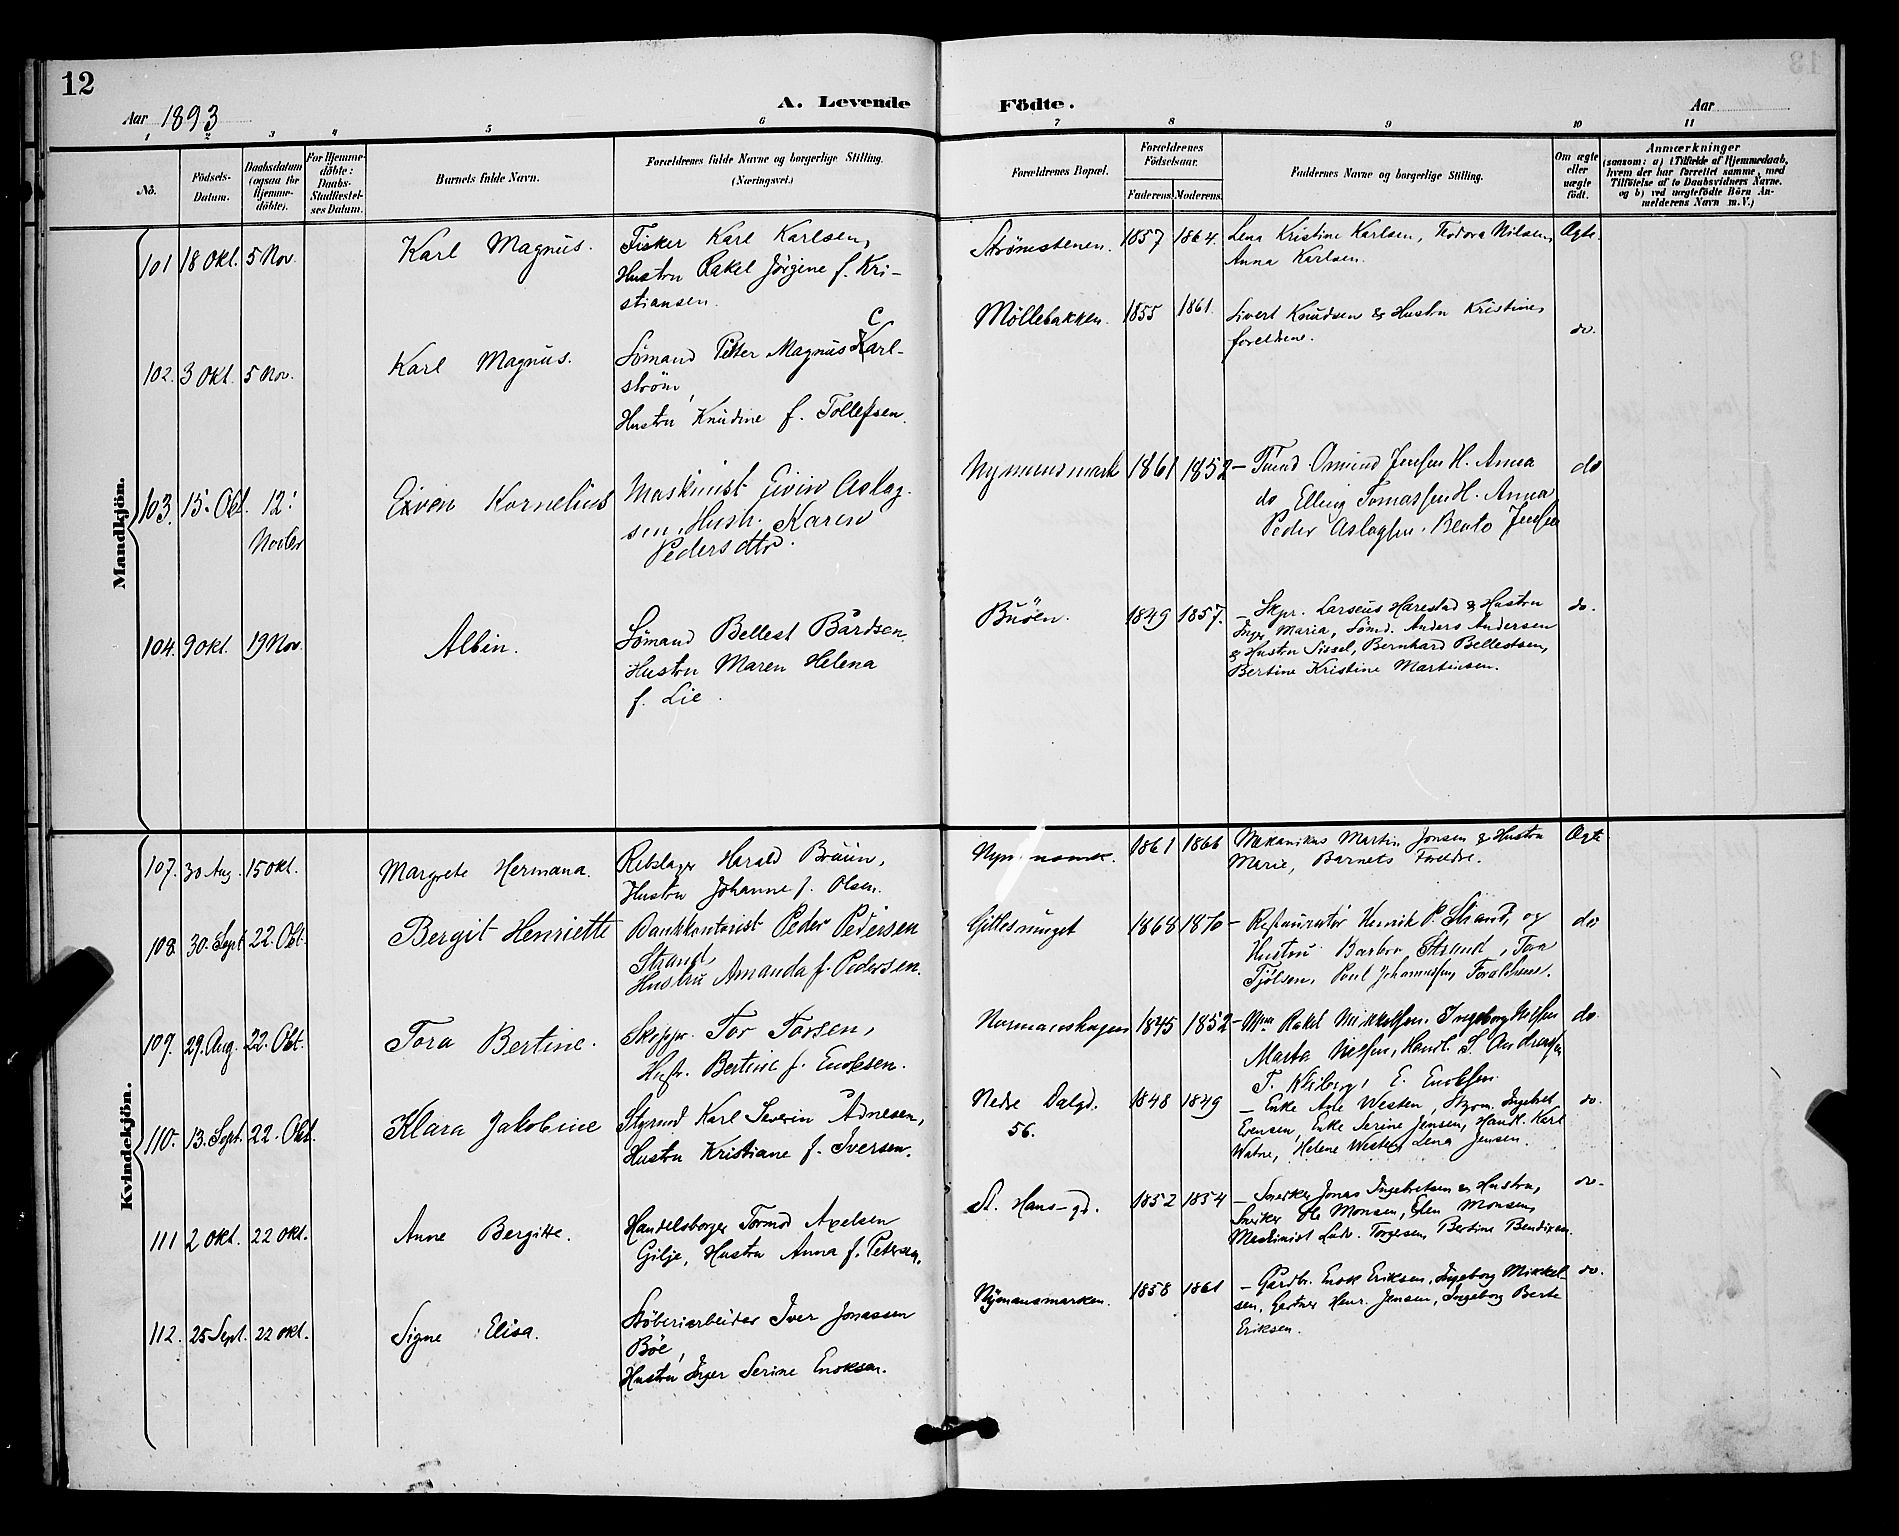 12
Aar 1893
A. Levende
Födte.
Aar
13
1 2 3 4 5 6 7 8 9 10 11
No.
Födsels-
Datum.
Daabsdatum
(ogsaa for
Hjemme-
döbte).
For Hjemme-
döbte:
Daabs-
Stadfæstel-
ses Datum.
Barnets fulde Navn.
Forældrenes fulde Navne og borgerlige Stilling.
(Næringsvei.)
Forældrenes Bopæl.
Forældrenes
Födselsaar.
Faderens. Moderens.
Faddernes Navne og borgerlige Stilling.
Om ægte
eller
uægte
født.
Anmærkninger
(saasom: a) i Tilfælde af Hjemmedaab,
hvem der har forrettet samme, med
Tilföielse af to Daabsvidners Navne.
og b) ved uægtefödte Börn An-
melderens Navn m. V.)
Mandkjön.
101 18 Okt. 5 Nov. Karl Magnus. Fisker Karl Karlsen,
Hustru Rakel Jörgine f. Kri-
stiansen.
Strömstenen. 1857 1864. Lena Kristine Karlsen, Todora Nilsen, Ægte.
Anna Karlsen.
102. 3 Okt. 5 Nov. Karl Magnus. Sömand Petter Magnus Carl-
ström,
Hustru Knudine f. Tollefsen.
Möllebakken. 1855 1861. Sivert Knudsen & Hustru Kristine, do.
foreldrene.
103. 15. Okt. 12. Novbr Eiven Kornelius Maskinist Eivin Aslag-
sen, Hustr. Karen
Pedersdtr.
Nymansmark 1861 1852 – Tømd Omund Jensen H. Anna do
do Elling Tomassen H. Anna
Peder Aslagsen. Berta Jensen
104. 9 Okt. 19 Nov. Albin. Sömand Bellest Bårdsen,
Hustru Maren Helena
f. Lie.
Buöen. 1849 1857. – Skpr. Larseus Harestad & Hustru do.
Inger Maria, Sömd. Anders Andersen
& Hustru Sissel, Bernhard Bellestsen,
Bertine Kristine Martinsen.
Kvindekjön.
107. 30 Aug. 15 Okt. Margrete Hermana. Rebslager Harald Bruun,
Hustru Johanne f. Olsen.
1861 1866 Mekanikus Martin Jonsen & Hustru Ægte
Marie, Barnets Foreldre.
108. 30. Sept 22. Okt. Bergit Henriette Bankkontorist Peder Pedersen
Strand,
Hustru Amanda f. Pedersen.
Gittesmuget 1868 1870 – Restauratör Henrik P. Strand, og do
Hustru Barbro Strand, Tora
Tjölsen, Poul Johannessen, Forældrene.
109. 29. Aug. 22. Okt. Tora Bertine. Skippr. Tor Torsen,
Hustr. Bertine f. Enoksen.
Normanshagen 1845 1852 – Rakel Mikkelsen. Ingeborg Nilsen do.
Marta Nielsen, Handl. S. Andreasen
T. Wiborg, E. Enoksen
110. 13. Sept. 22. Okt. Klara Jakobine Styrmd Karl Severin Adnesen,
Hustru Kristiane f. Iversen.
Nedre Dalgd.
56.
1848 1849 – Enke Ane Westen, Ingebret do.
Evensen, Enke Serine Jensen, Handl. Karl
Watne, Helene Westen, Lena Jensen.
111 2 Okt. 22 Okt. Anne Bergitte. Handelsborger Tormod Axelsen
Gilje, Hustru Anna f. Petersen.
St. Hans-gd. 1852 1854 – Snedker Jonas Ingebretsen & Hustru, do.
Snedker Ole Monsen, Elen Monsen,
Maskinist Ludv. Torgersen, Bertine Bendixen.
112. 25 Sept. 22 Okt. Signe Elisa. Stöberiarbeider Iver Jonassen
Böe,
Hustru Inger Serine Enoksen.
Nymansmarken. 1858 1861 – Gårdbr. Enok Eriksen, Ingeborg Mikkel- do.
sen, Gartner Henr. Jensen, Ingeborg Berte
Eriksen.